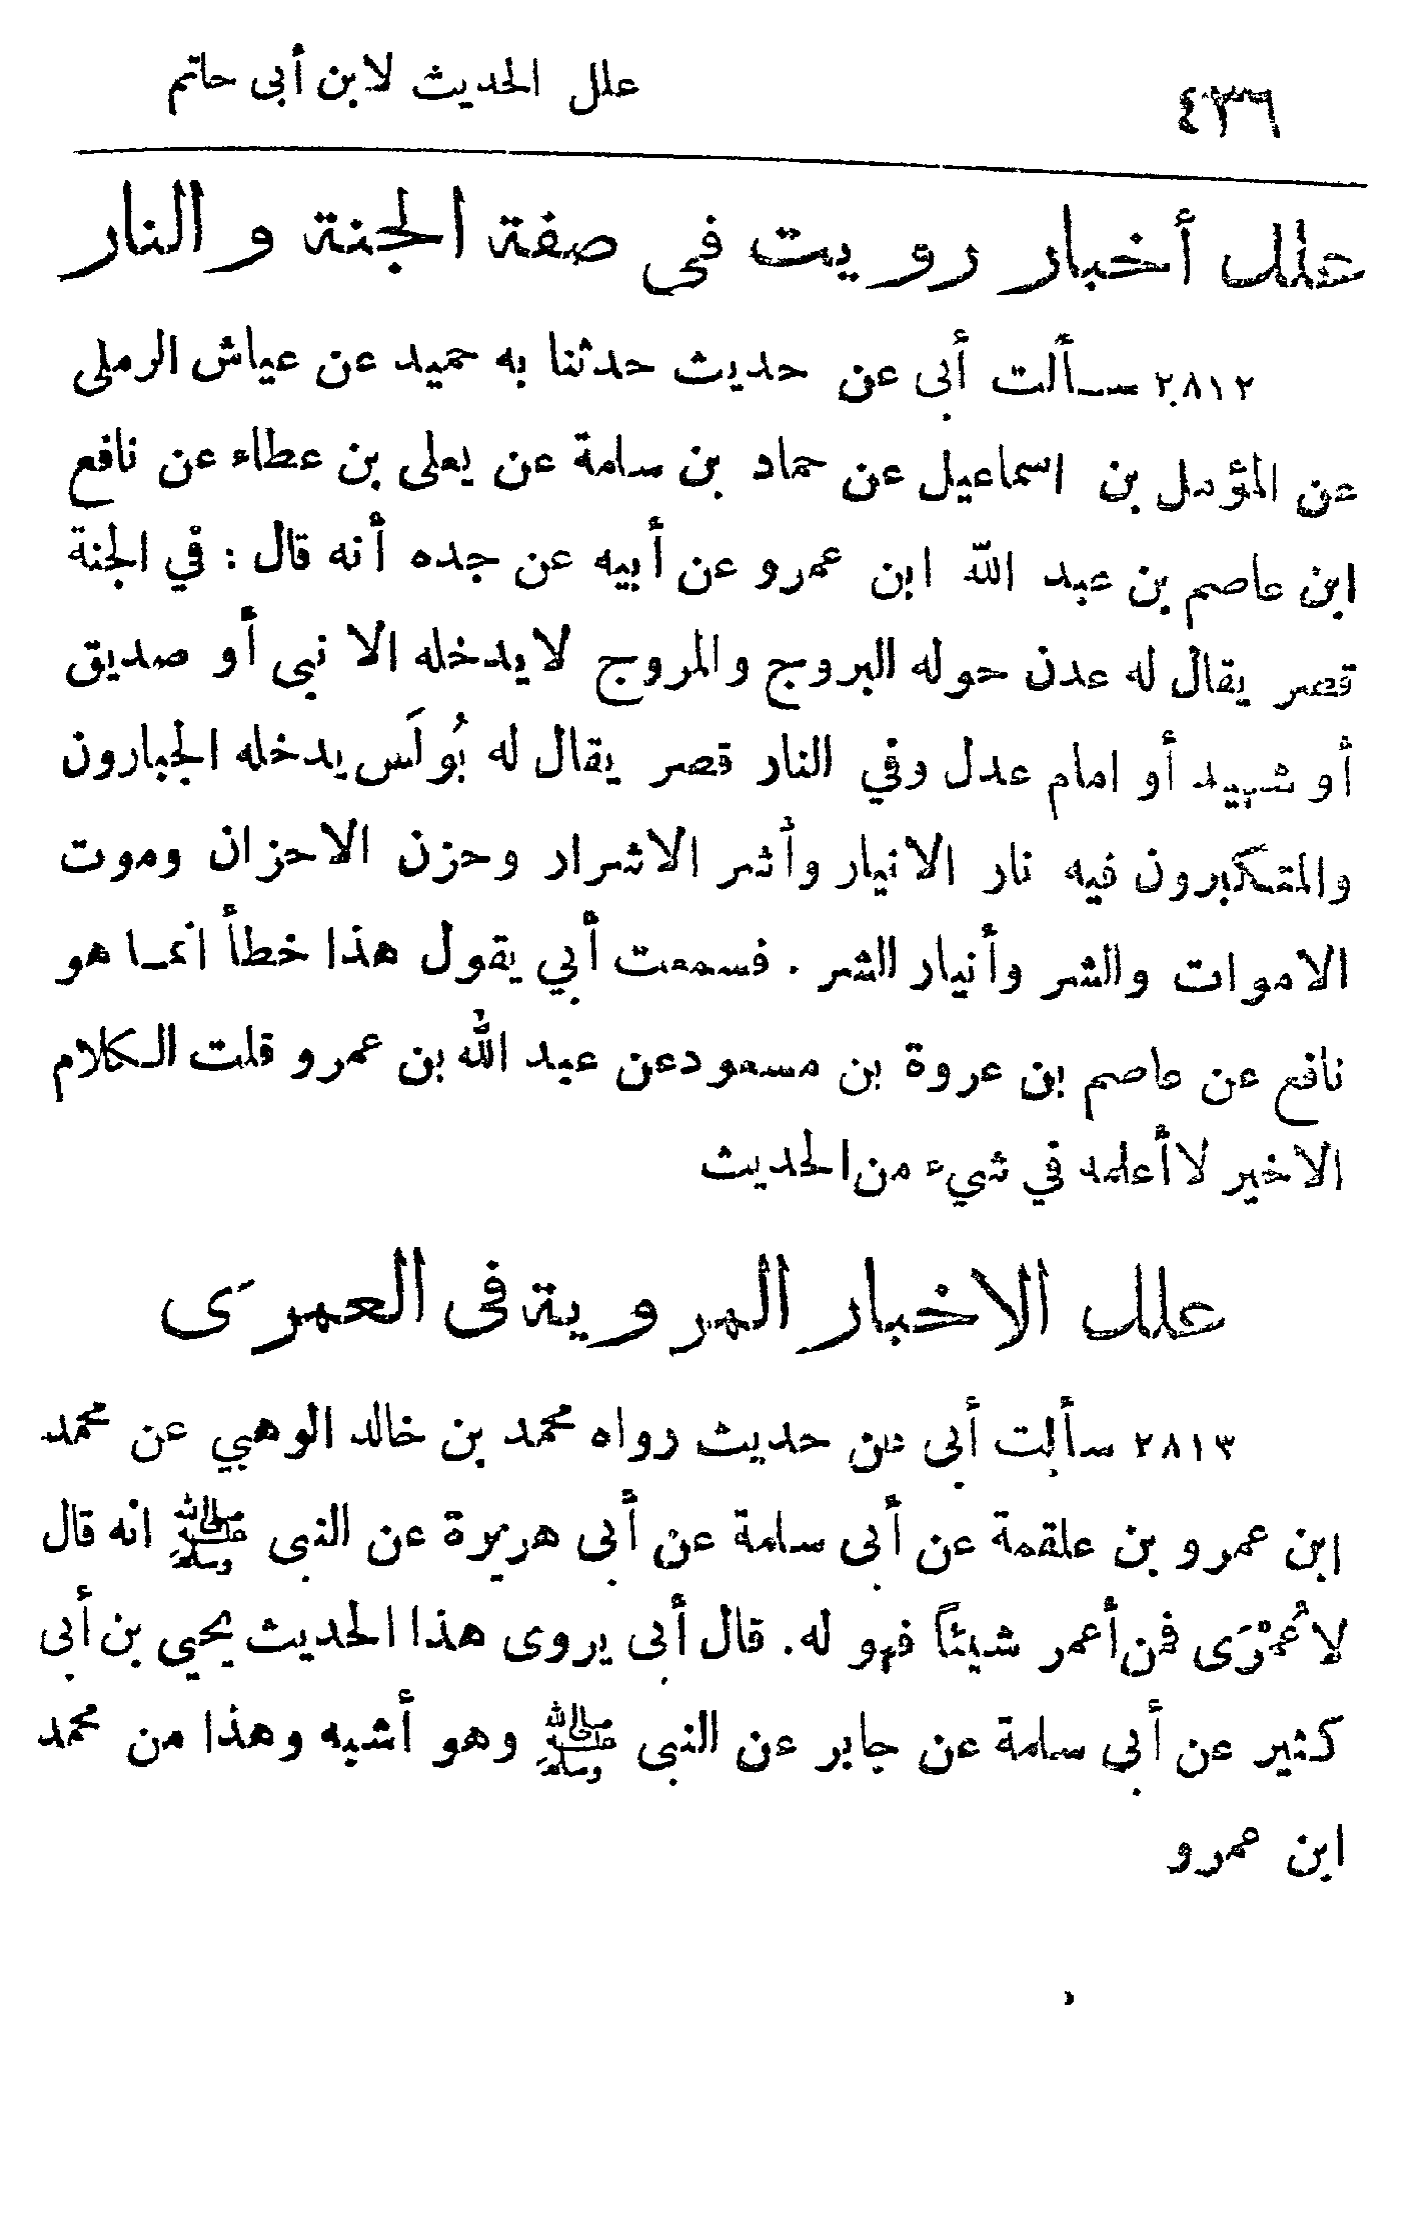 ٤٣٦ علل الحديث لابن أبى حاتم
علل أخبار رويت فى صفة الجنة والنار
٢٨١٢ ســألت أبى عن حديث حدثنا به حميد عن عياش الرملى
عن المؤمل بن اسماعيل عن حماد بن سلمة عن يعلى بن عطاء عن نافع
ابن عاصم بن عبد الله ابن عمرو عن أبيه عن جده أنه قال : في الجنة
قصر يقال له عدن حوله البروج والمروج لايدخله الا نبى أو صديق
أو شهيد أو امام عدل وفي النار قصر يقال له بُولَس يدخله الجبارون
والمتكبرون فيه نار الانيار وأشر الاشرار وحزن الاحزان وموت
الاموات والشر وأنيار الشر . فسمعت أبي يقول هذا خطأ انمـا هو
نافع عن عاصم بن عروة بن مسعود عن عبد الله بن عمرو قلت الـكلام
الاخير لا أعلمه في شيء من الحديث
علل الاخبار المروية فى العمرَى
٢٨١٣ سألت أبى عن حديث رواه محمد بن خالد الوهبي عن محمد
ابن عمرو بن علقمة عن أبى سلمة عن أبى هريرة عن النبى ﷺ انه قال
لا عُمْرَى فمن أعمر شيئاً فهو له. قال أبى يروى هذا الحديث يحيي بن أبى
كثير عن أبى سلمة عن جابر عن النبى ﷺ وهو أشبه وهذا من محمد
ابن عمرو